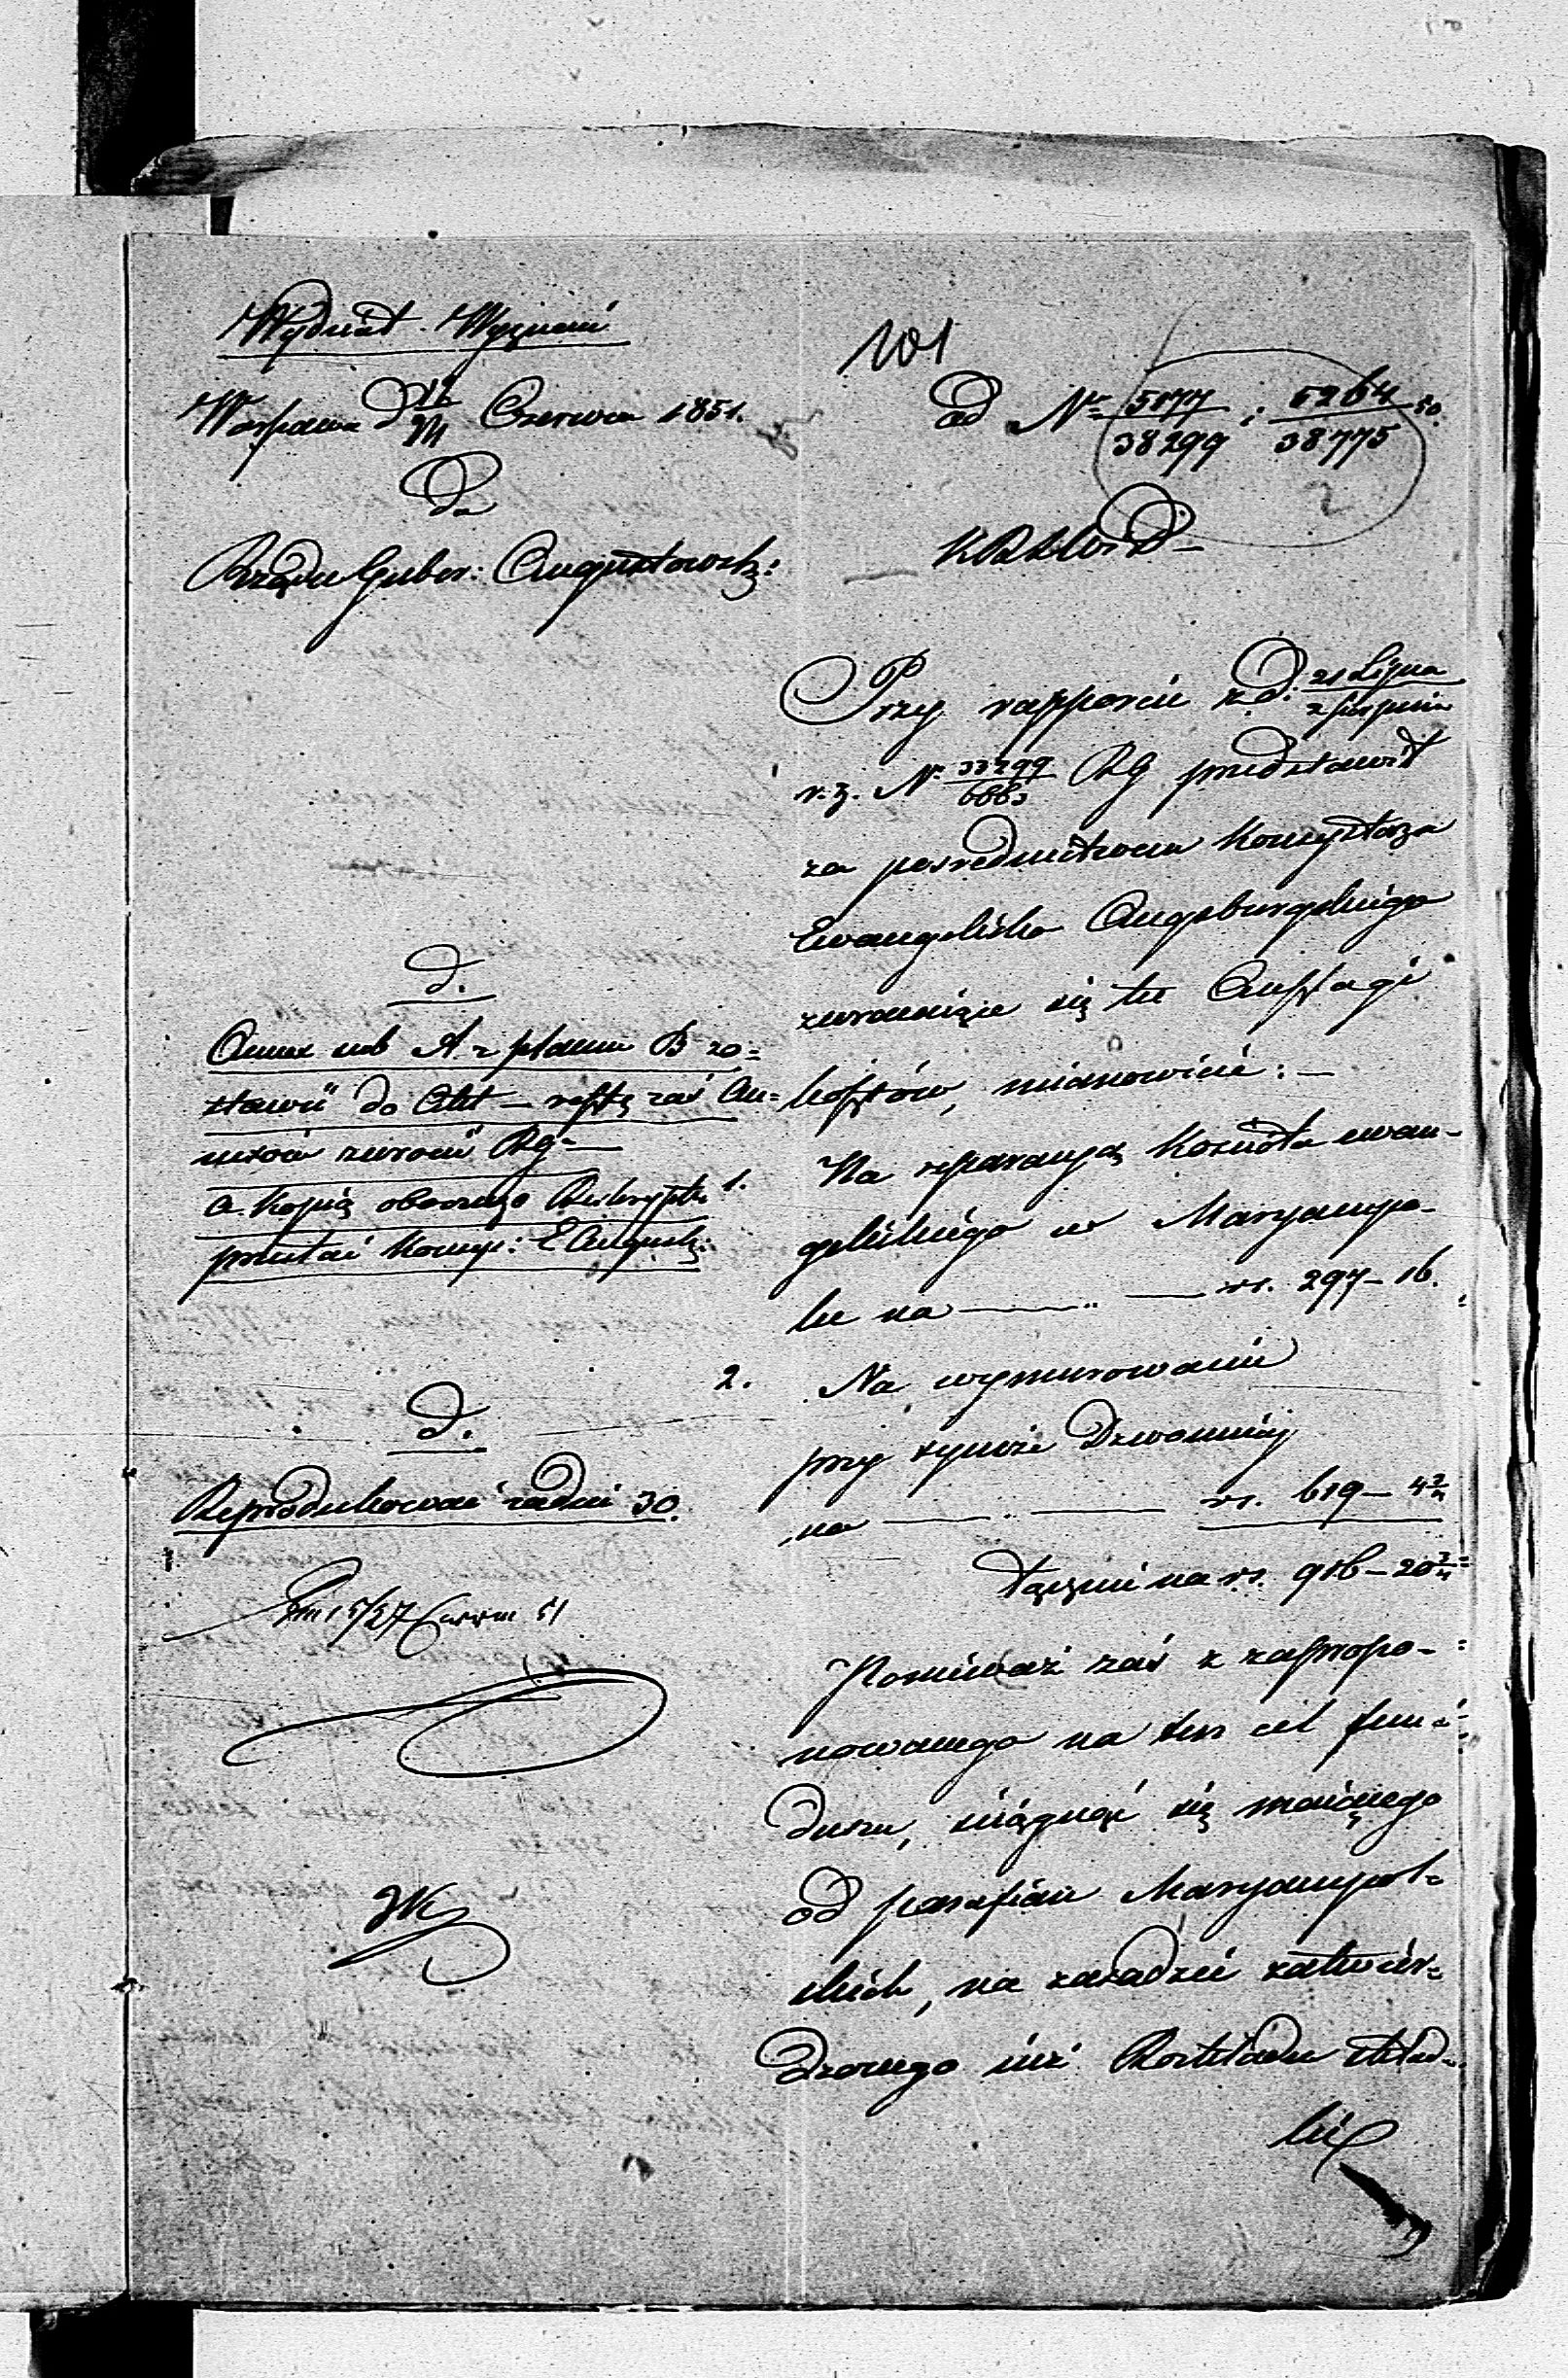 Wydział Wyznań
Warszawa d 12/24 Czerwca 1851.
Do
Rządu Guber: Augustowsk:
d.
Annex sub A z planem B zo=
stawić do Akt — resztę zaś An=
nexów zwrócić RG —
a kopią obecnego Reskryptu
przesłać Konsys: E Augsb:
d.
Reprodukować za dni 30.
101
ad Nr 5177/38299 : 5264/38775 50.
KRSWiD —
Przy rapporcie z d: 21 Lipca/2 Sierpnia
r. z. N 33299/6663 RG przedstawił
za pośrednictwem Konsystorza
Ewangelicko Augsburgskiego
zwracaiące się tu Anszlagi
kosztów, mianowicie: —
1. Na reparacyą Kościoła ewan=
gelickiego w Maryampo=
lu na — rs. 297 — 16.
2. Na wymurowanie
przy tymże Dzwonnicy
na — rs. 619 — 4 3/4
Łącznie na rs. 916 — 20 3/4
Ponieważ zaś z zapropo=
nowanego na ten cel fun=
duszu, ściągnąć się maiącego
od parafian Maryampol=
skich, na zasadzie zatwier=
dzonego iuż Rozkładu skład=
ki